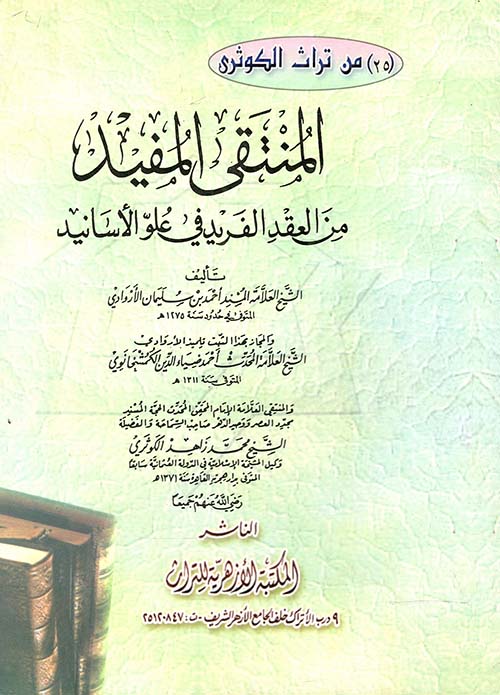 (٢٥) من تراث الكوثرى
المُنْتَقى المُفيد
مِنَ العِقدِ الفَريد في عُلوّ الأسَانيد
تأليف
الشيخ العلامة المُسنِد أحمد بن سليمان الأروادي
المتوفى في حدود سنة ١٢٧٥ هـ
والمجاز بهذا الثبت تلميذ الأروادي
الشيخ العلامة المحدث أحمد ضياء الدين الكمشخانوي
المتوفى سنة ١٣١١ هـ
والمنتقي العلامة الإمام المحقق المحدث الحجة المسند
مجدد العصر ووحيد الدهر صاحب السماحة والفضيلة
الشيخ محمد زاهد الكوثري
وكيل المشيخة الإسلامية في الدولة العثمانية سابقا
المتوفى بدار هجرته القاهرة سنة ١٣٧١ هـ
رضي الله عنهم جميعا
الناشر
المكتبة الأزهرية للتراث
٩ درب الأتراك خلف الجامع الأزهر الشريف - ت: ٢٥١٢٠٨٤٧